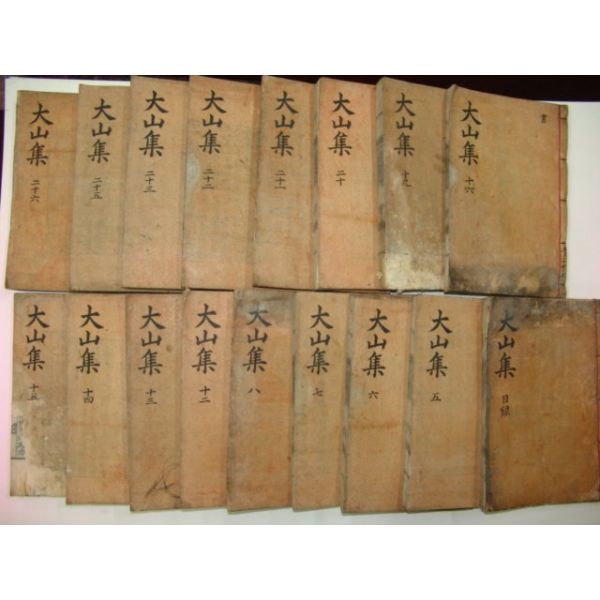 書
大山集 十六
大山集 十九
大山集 二十
大山集 二十一
大山集 二十二
大山集 二十三
大山集 二十五
大山集 二十六
大山集 目録
大山集 五
大山集 六
大山集 七
大山集 八
大山集 十二
大山集 十三
大山集 十四
大山集 十五